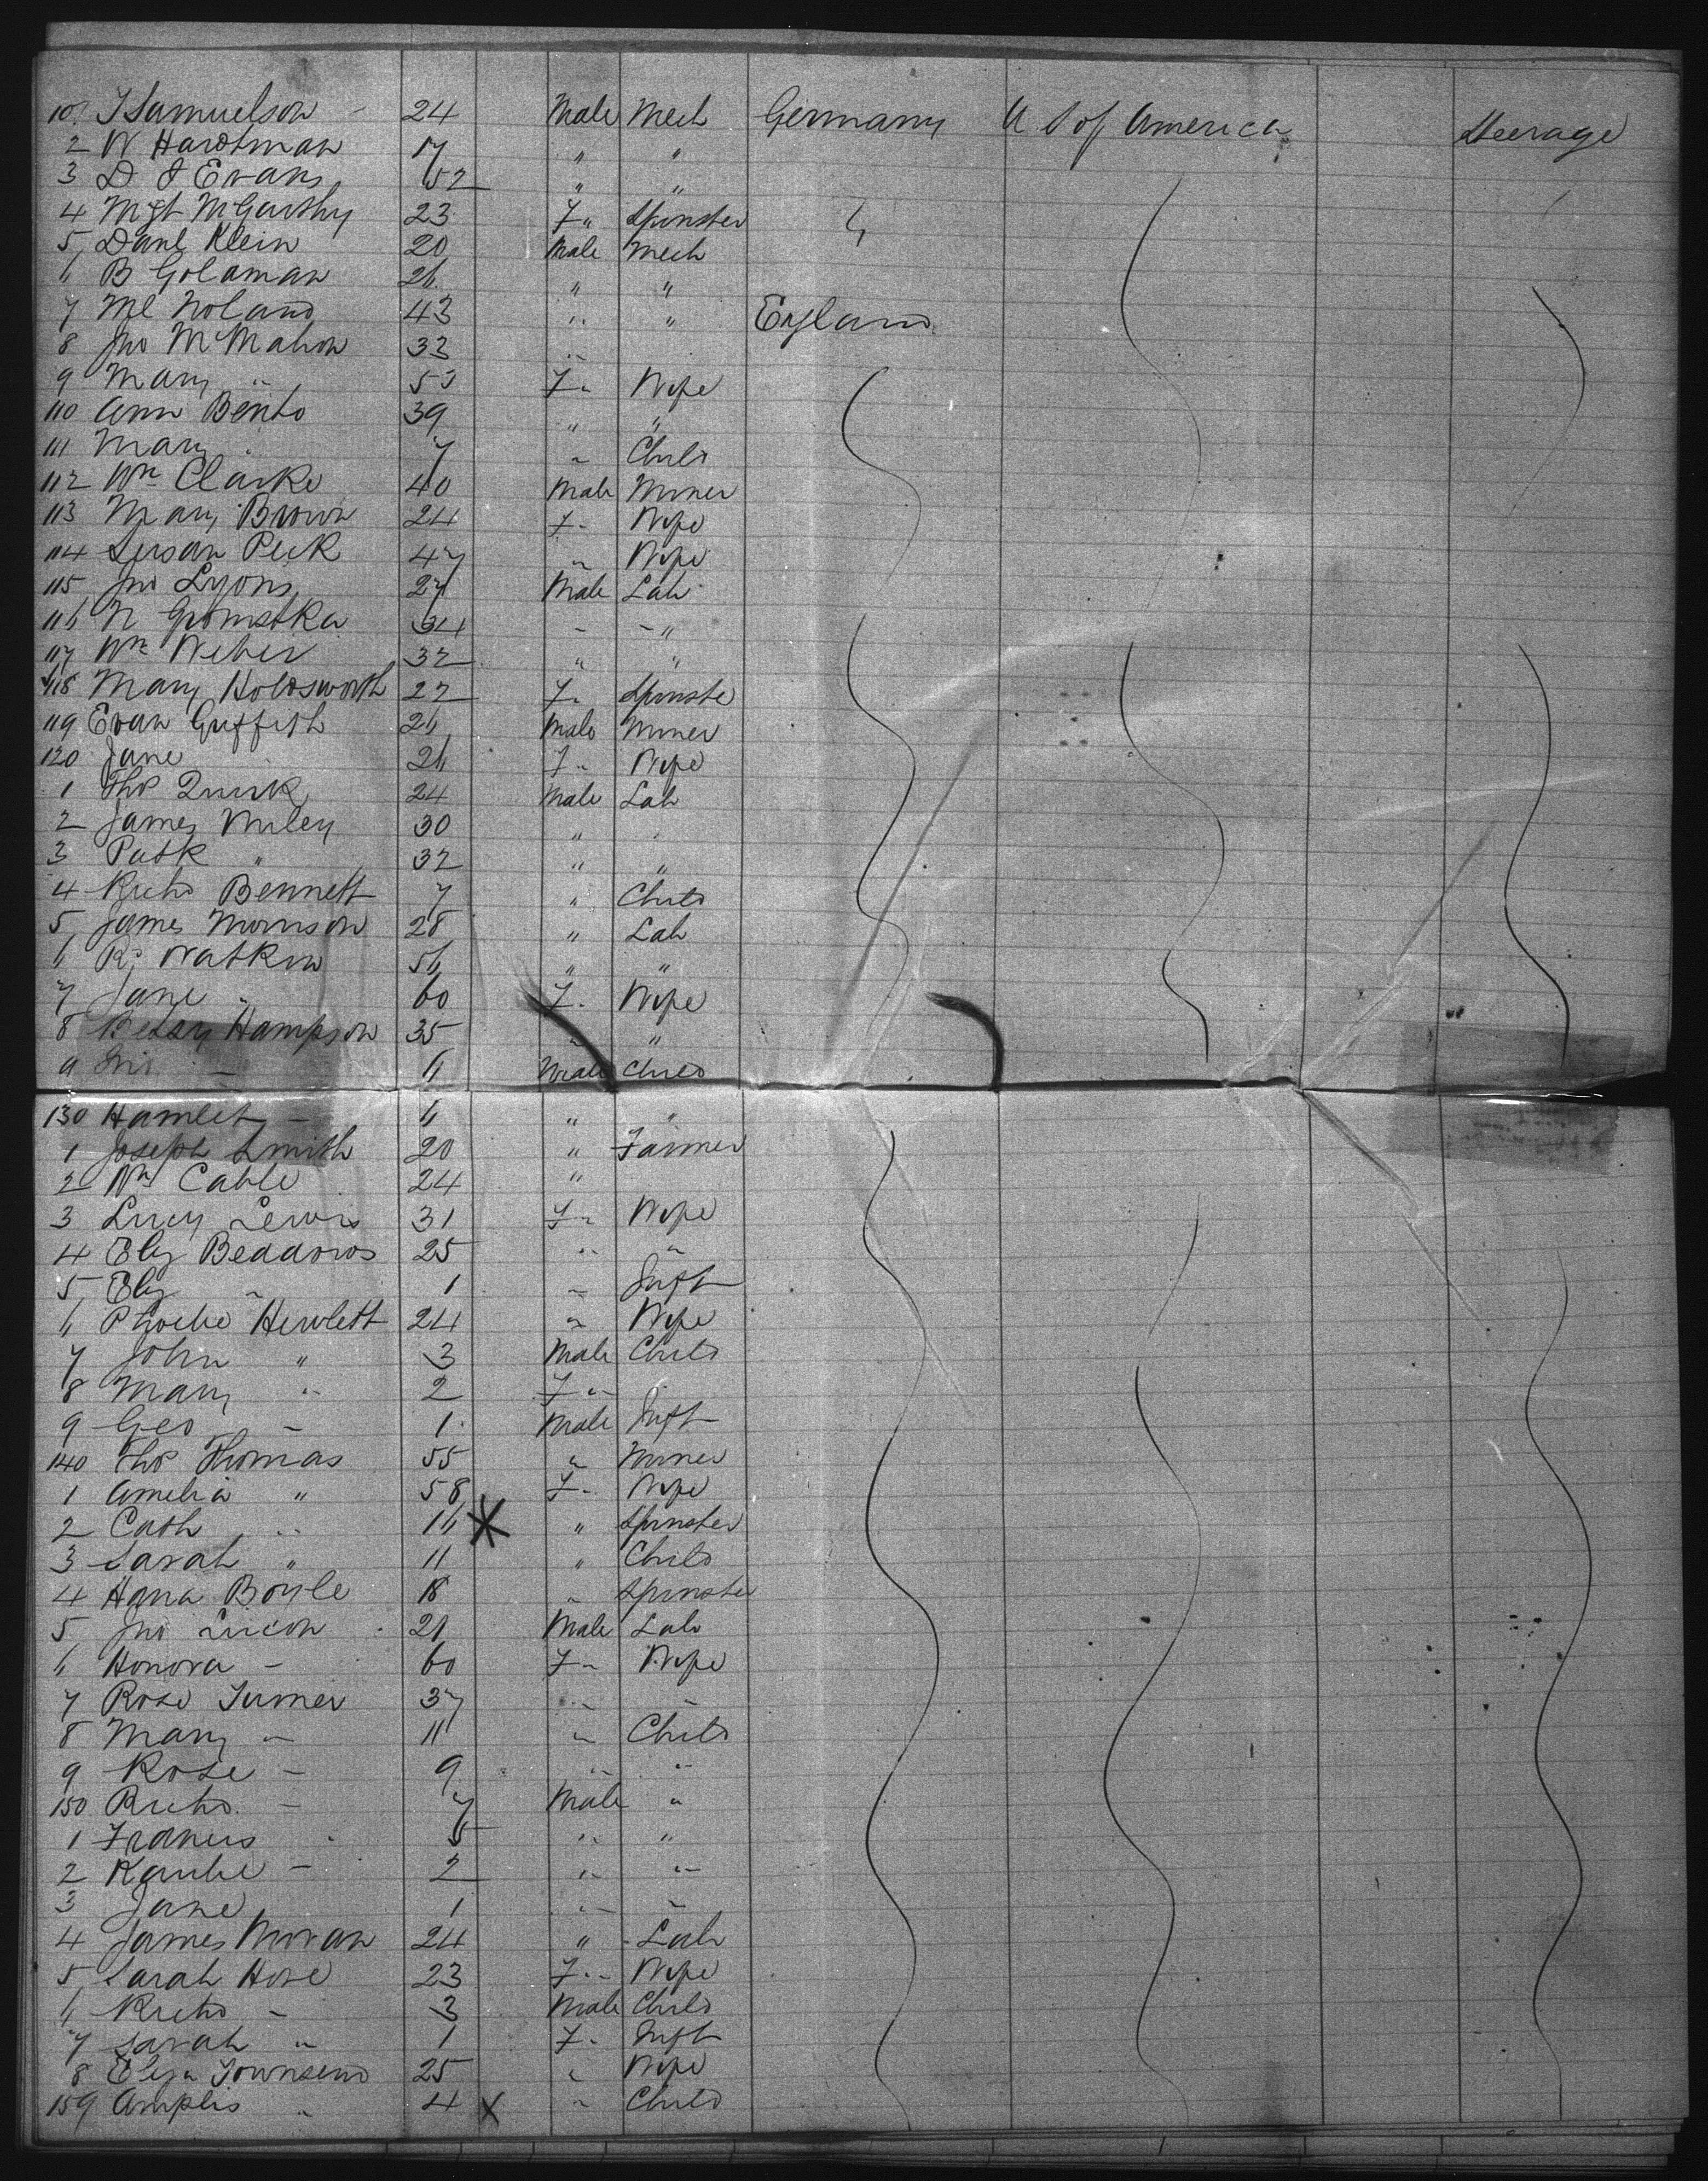 101 J Samuelson - 24 Male Mech Germany U S of America Steerage
2 W Hardtman 17 " "
3 D J Evans 52 " "
4 Mgt McGarthy 23 F " Spinster
5 Danl Klein 20 Male Mech
6 B Goldman 26 " "
7 Ml Noland 43 " " England
8 Jno McMahon 33 "
9 Mary " 53 F " Wife
110 Ann Bento 39 " "
111 Mary " 7 " Child
112 Wm Clarke 40 Male Miner
113 Mary Brown 24 F " Wife
114 Susan Peck 47 " Wife
115 Jno Lyons 27 Male Lab
116 N Gromstka 34 " "
117 Wm Weber 32 " "
118 Mary Holdsworth 22 F " Spinste
119 Evan Griffith 26 Male Miner
120 Jane 26 F " Wife
1 Thos Quirk 24 Male Lab
2 James Miley 30 " "
3 Patk " 32 " "
4 Richd Bennett 7 " Child
5 James Morrison 28 " Lab
6 Rd Watkin 56 " "
7 Jane " 60 F " Wife
8 Betsy Hampson 35 " "
9 Jno - 6 Male Child
130 Hamlet - 6 " "
1 Joseph Smith 20 " Farmer
2 Wm Cable 24 "
3 Lucy Lewis 31 F " Wife
4 Elz Beddows 25 " "
5 Elz " 1 " Inft
6 Phoebe Hewlett 24 " Wife
7 John " 3 Male Child
8 Mary " 2 F "
9 Geo - 1 Male Inft
140 Thos Thomas 55 " Miner
1 Amelia " 58 F " Wife
2 Cath " 16 X " Spinster
3 Sarah " 11 " Child
4 Hana Boyle 18 " Spinster
5 Jno 21 Male Lab
6 Honora - 60 F " Wife
7 Rose Turner 37 " "
8 Mary - 11 " Child
9 Rose - 9 " "
150 Richd - 7 Male "
1 Francis - 5 " "
2 - 2 " "
3 Jane 1 " "
4 James Moran 24 " Lab
5 Sarah Hose 23 F " Wife
6 Richd - 3 Male Child
7 Sarah " 1 F " Inft
8 Eliza Townsend 25 " Wife
159 Amplis " 4 X " Child